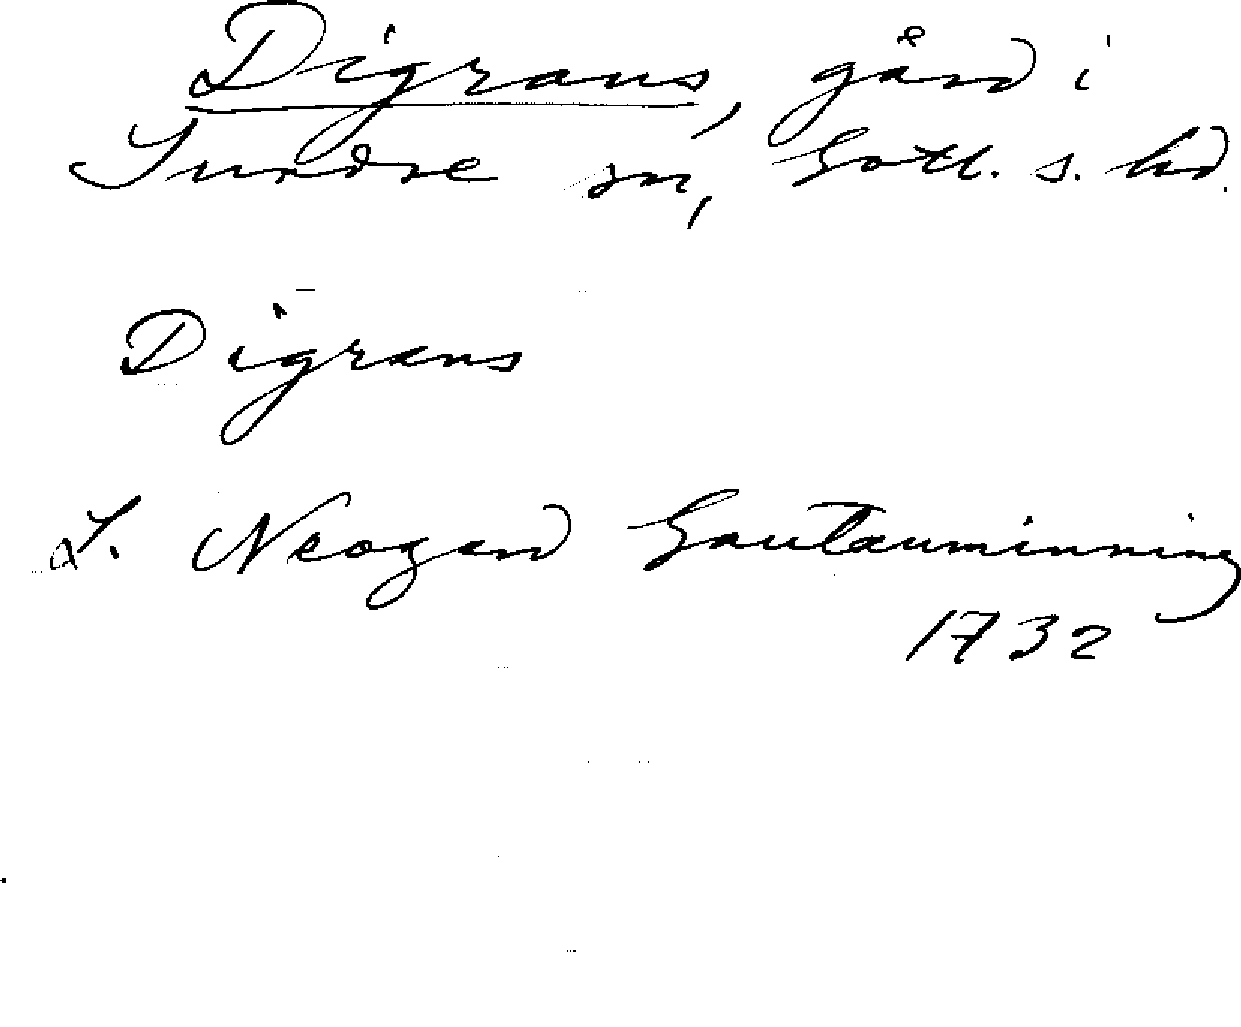 Digrans, gård i
Sundre sn, Gotl. s. hd.
Digrans
L. Neogard Gautauminning
1732